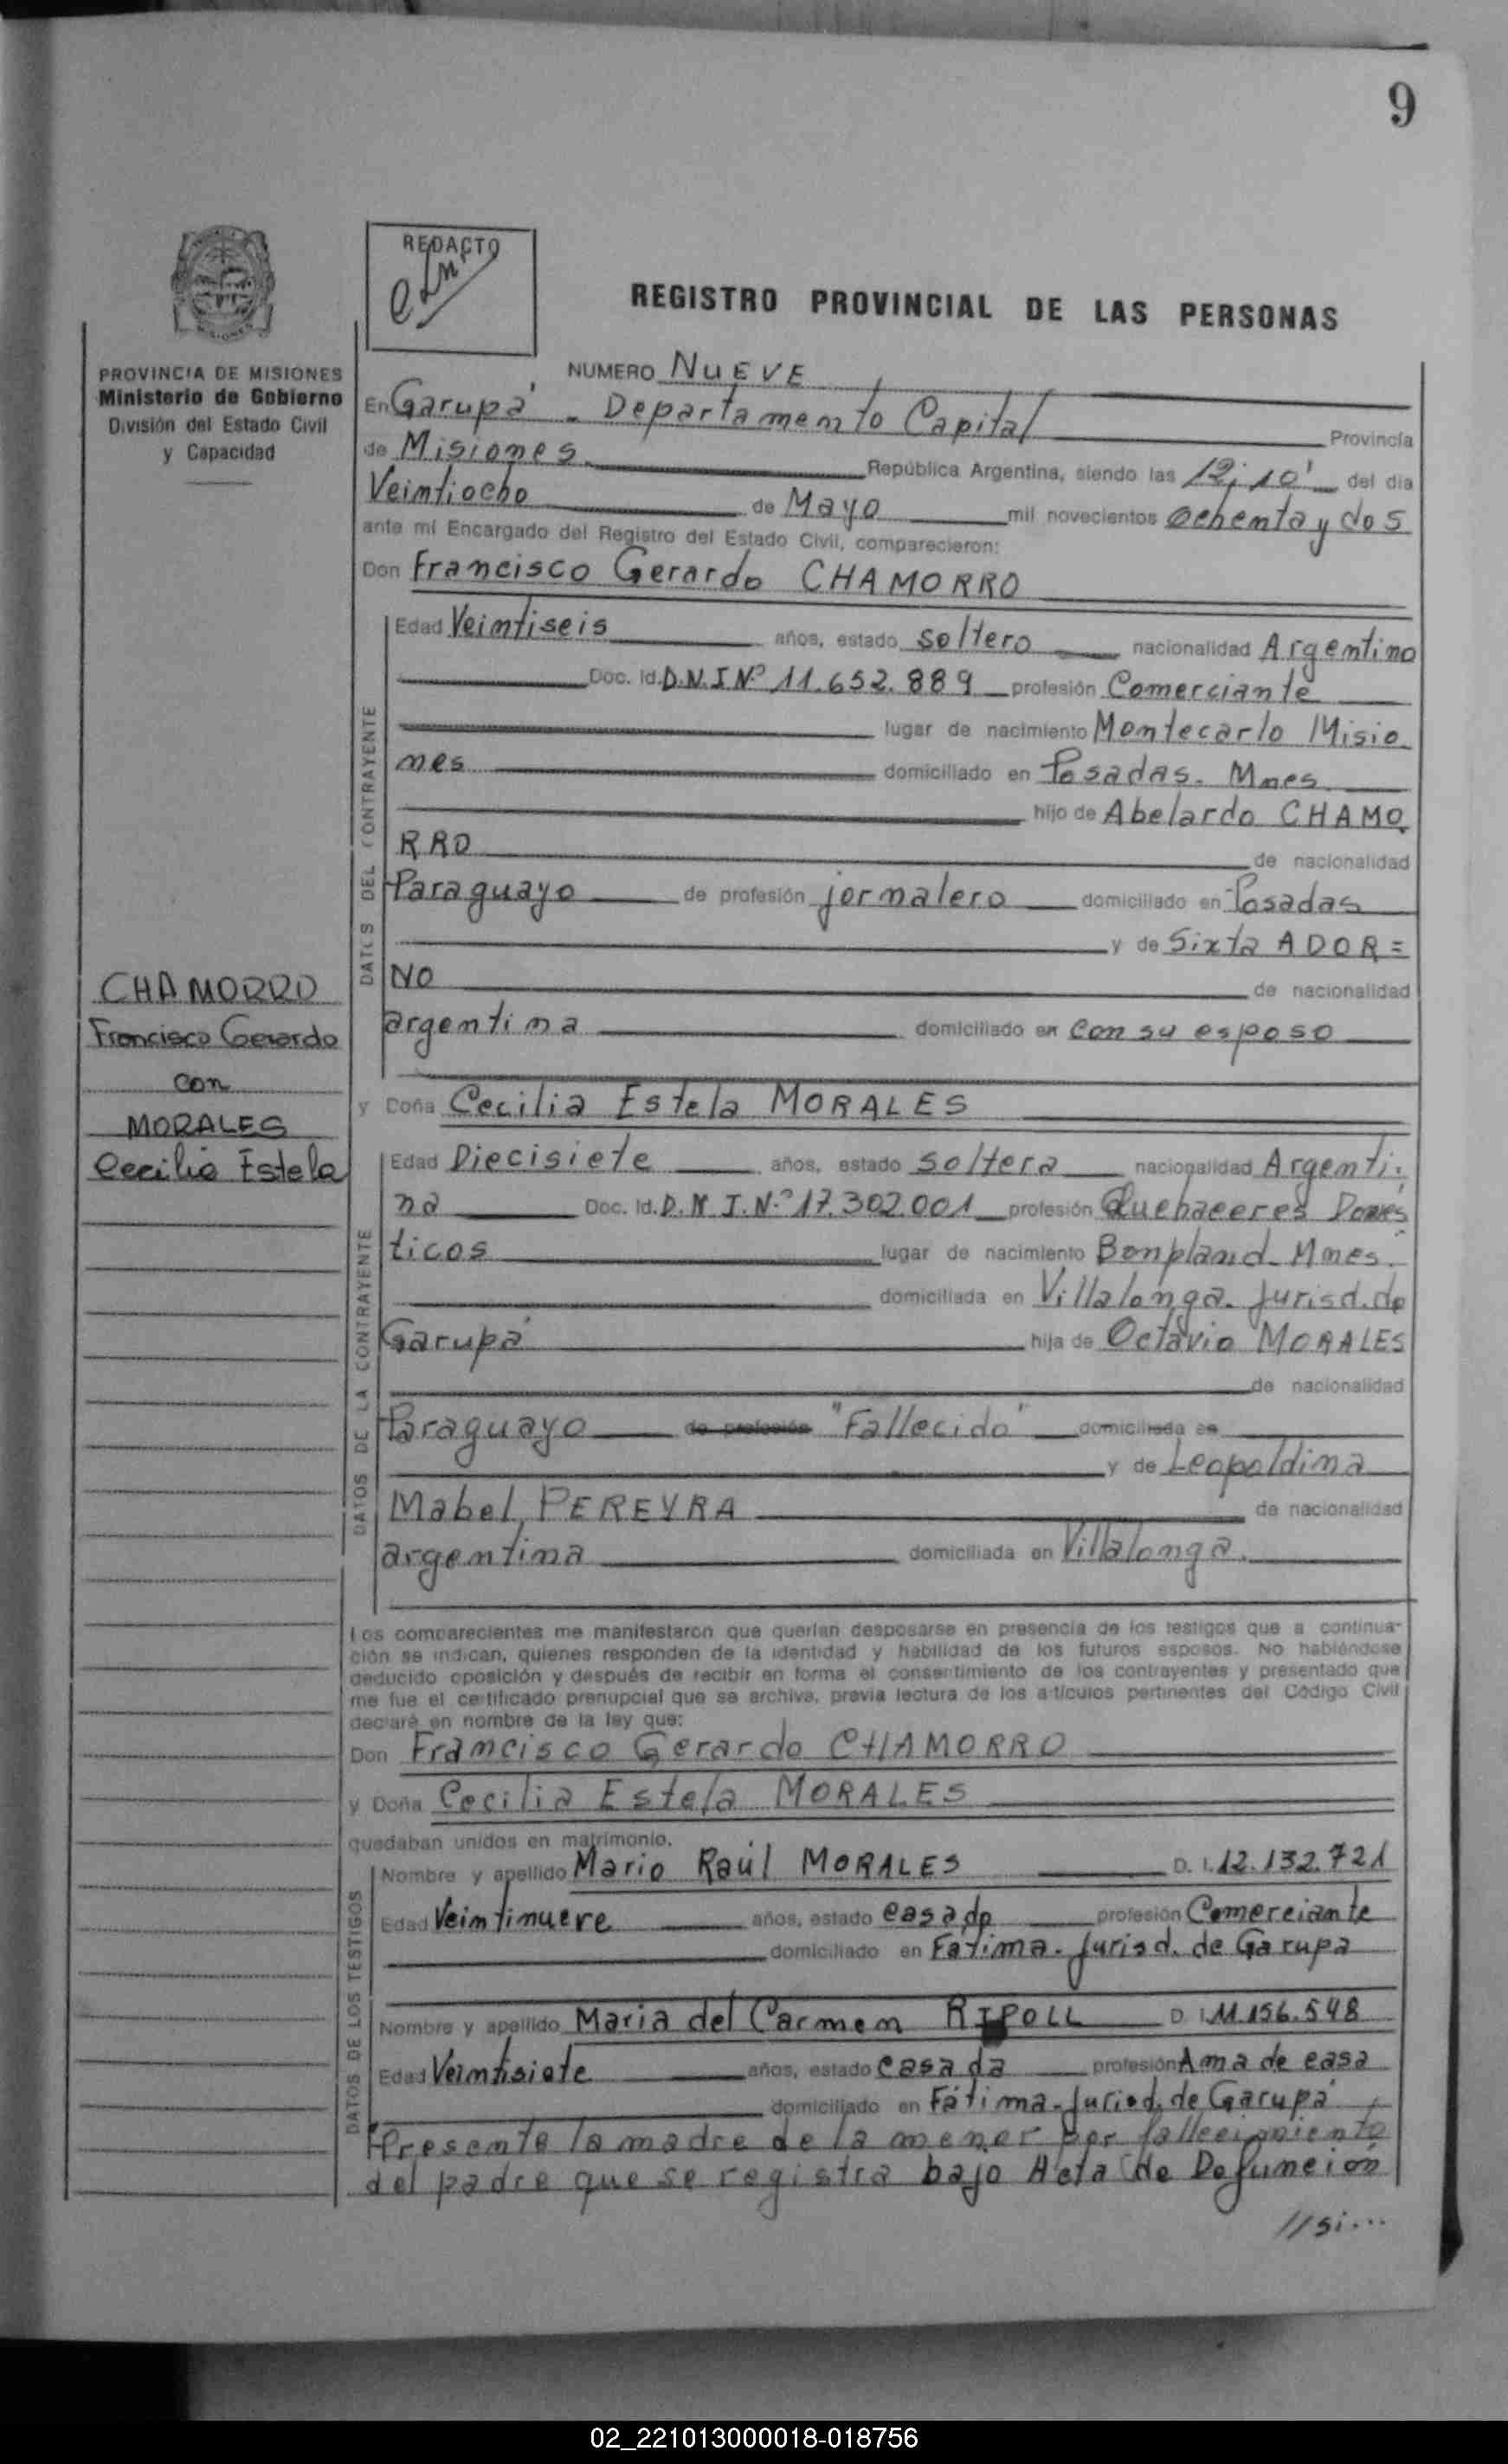 9
REDACTO
REGISTRO PROVINCIAL DE LAS PERSONAS
PROVINCIA DE MISIONES
Ministerio de Gobierno
División del Estado Civil
y Capacidad
NUMERO NUEVE
En Garupá - Departamento Capital Provincia
de Misiones República Argentina, siendo las 12; 10' del día
Veintiocho de Mayo mil novecientos ochenta y dos
ante mí Encargado del Registro del Estado Civil, comparecieron:
Don Francisco Gerardo CHAMORRO
DATOS DEL CONTRAYENTE
Edad Veintiseis años, estado soltero nacionalidad Argentino
Doc. Id. D.N.I Nº 11.652.889 profesión Comerciante
lugar de nacimiento Montecarlo Misio
nes domiciliado en Posadas. Mnes
hijo de Abelardo CHAMO
RRO de nacionalidad
Paraguayo de profesión jornalero domiciliado en Posadas
y de Sixta ADOR=
NO de nacionalidad
argentina domiciliado en con su esposo
CHAMORRO
Francisco Gerardo
con
MORALES
Cecilia Estela
y Doña Cecilia Estela MORALES
DATOS DE LA CONTRAYENTE
Edad Diecisiete años, estado soltera nacionalidad Argenti-
na Doc. Id. D.N.I.Nº 17.302.001 profesión Quehaceres Domés
ticos lugar de nacimiento Bonpland- Mnes.
domiciliada en Villalonga- Jurisd. de
Garupá hija de Octavio MORALES
de nacionalidad
Paraguayo de profesión "Fallecido" domiciliada en
y de Leopoldina
Mabel PEREYRA de nacionalidad
argentina domiciliada en Villalonga.
Los comparecientes me manifestaron que querían desposarse en presencia de los testigos que a continua-
ción se indican, quienes responden de la identidad y habilidad de los futuros esposos. No habiéndose
deducido oposición y después de recibir en forma el consentimiento de los contrayentes y presentado que
me fue el certificado prenupcial que se archiva, previa lectura de los artículos pertinentes del Código Civil
declaré en nombre de la ley que:
Don Francisco Gerardo CHAMORRO
y Doña Cecilia Estela MORALES
quedaban unidos en matrimonio.
DATOS DE LOS TESTIGOS
Nombre y apellido Mario Raúl MORALES D. I. 12.132.721
Edad Veintinueve años, estado casado profesión Comerciante
domiciliado en Fátima- Jurisd. de Garupa
Nombre y apellido Maria del Carmen RIPOLL D. I. 11.156.548
Edad Veintisiete años, estado casada profesión Ama de casa
domiciliado en Fátima- Jurisd. de Garupá
Presente la madre de la menor por fallecimiento
del padre que se registra bajo Acta de Defunción
//si...
02_221013000018-018756